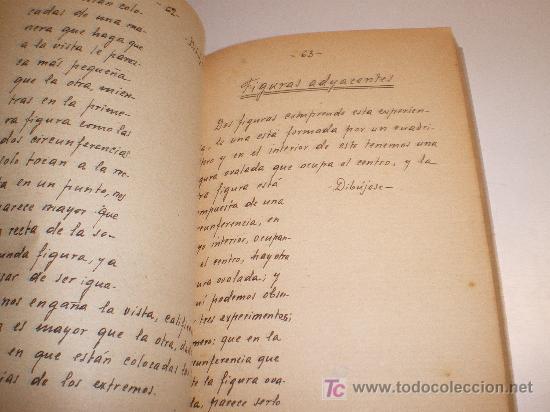 - 62
están colo-
cadas de una ma-
nera que haga que
a la vista le para-
ca más pequeña
que la otra, mien
tras en la prime-
ra figura como las
dos circunferencias
solo tocan a la re
ta en un punto, nos
parece mayor que
recta de la se-
unda figura, y a
sar de ser igua-
nos engaña la vista,
a es mayor que la otra,
en que están colocadas
ias de los extremos.
- 63 -
Figuras adyacentes
Dos figuras comprende esta experien
ia. la una está formada por un cuadri
tero y en el interior de este tenemos una
gura ovalada que ocupa el centro, y la
ra figura está
-Dibújese-
mpuesta de una
cunferencia, en
yo interior, ocupan-
el centro, hay otra
ura ovalada; y
uí podemos obser
tres experimentos;
mero: que en la
cunferencia que
ta la figura ova-
da, parece serlo
TC www.todocoleccion.net